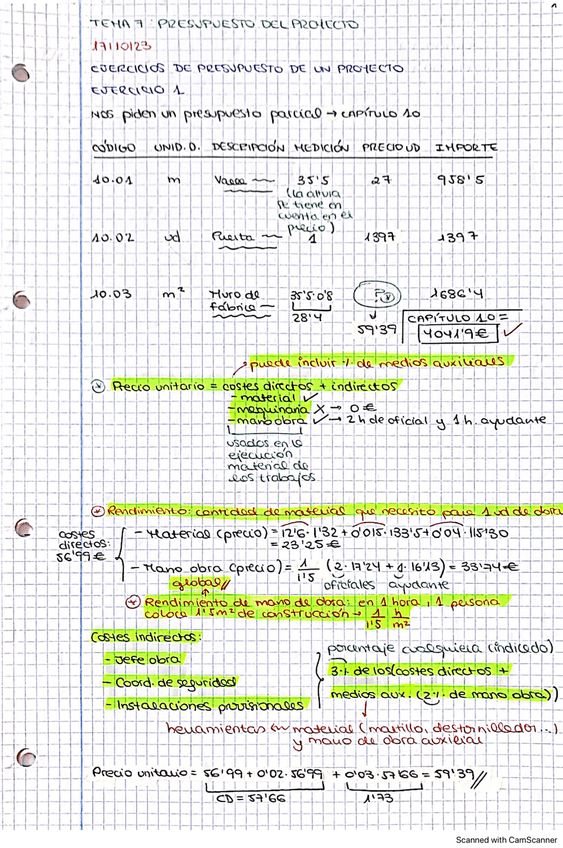 1
TEMA 7: PRESUPUESTO DEL PROYECTO
17/10/23
EJERCICIOS DE PRESUPUESTO DE UN PROYECTO
EJERCICIO 1
Nos piden un presupuesto parcial → CAPÍTULO 10
CÓDIGO UNID.O. DESCRIPCIÓN MEDICIÓN PRECIO UD IMPORTE
10.01 m Valla 35'5 27 958'5
(La altura
se tiene en
cuenta en el
precio)
10.02 ud Puerta 1 1397 1397
10.03 m² Muro de 35'5·0'8 ? 1686'4
fábrica 28'4 59'39 CAPÍTULO 10 =
4041'9€ ✓
puede incluir % de medios auxiliares
* Precio unitario = costes directos + indirectos
- material ✓
- maquinaria X → 0€
- mano obra ✓ → 2h de oficial y 1h. ayudante
usados en la
ejecución
material de
los trabajos
* Rendimiento: cantidad de material que necesito para 1 ud de obra
costes
directos:
56'99€
- Material (precio) = 12'6·1'32 + 0'015·133'5 + 0'04·115'30
= 23'25€
- Mano obra (precio) = 1/1'5 (2·17'24 + 1·16'13) = 33'74€
global// oficiales ayudante
* Rendimiento de mano de obra: en 1 hora, 1 persona
coloca 1'5m² de construcción → 1/1'5 h/m²
Costes indirectos:
- Jefe obra
- Coord. de seguridad
- Instalaciones provisionales
porcentaje cualquiera (indicado)
3% de los (costes directos +
medios aux. (2% de mano obra))
herramientas material (martillo, destornillador...)
y mano de obra auxiliar
Precio unitario = 56'99 + 0'02·56'99 + 0'03·57'66 = 59'39//
CD = 57'66 1'73
Scanned with CamScanner